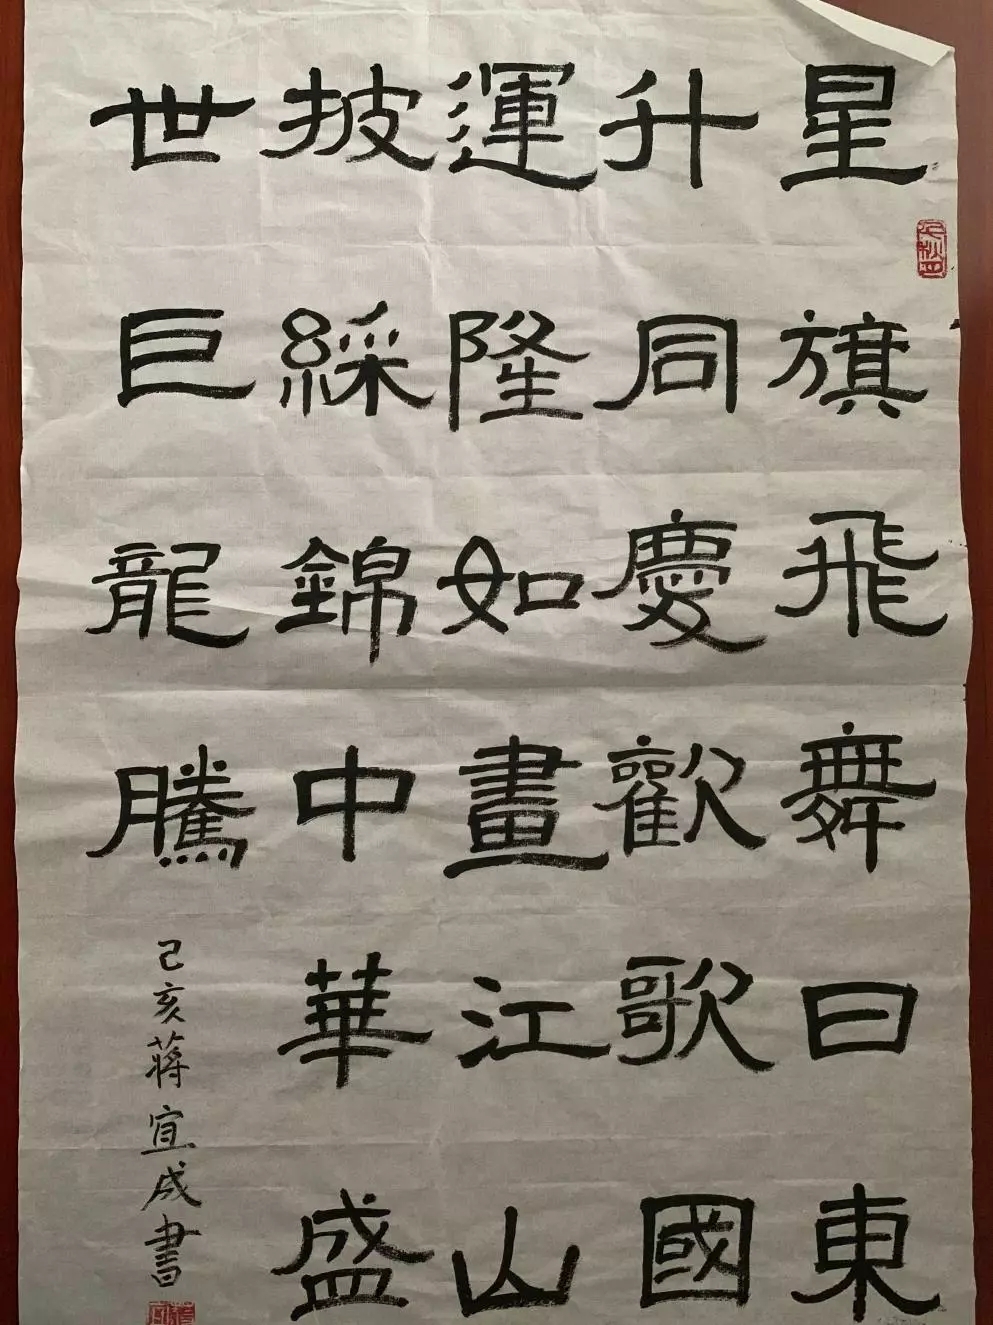 星旗飛舞日東
升同慶歡歌國
運隆如畫江山
披綵錦中華盛
世巨龍騰
己亥蔣宣成書